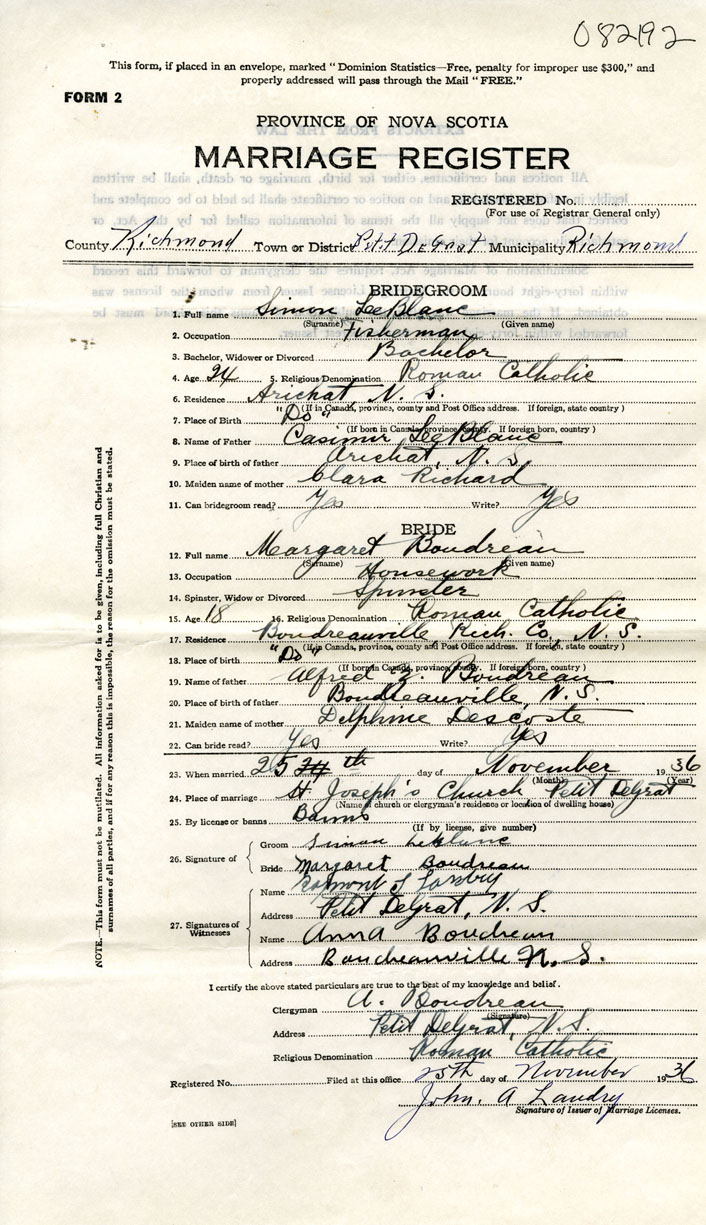 082192
This form, if placed in an envelope, marked "Dominion Statistics—Free, penalty for improper use $300," and
properly addressed will pass through the Mail "FREE."
FORM 2
PROVINCE OF NOVA SCOTIA
MARRIAGE REGISTER
REGISTERED No.
(For use of Registrar General only)
County Richmond Town or District Petit DeGrat Municipality Richmond
BRIDEGROOM
1. Full name Simon LeBlanc
(Surname) (Given name)
2. Occupation Fisherman
3. Bachelor, Widower or Divorced Bachelor
4. Age 24 5. Religious Denomination Roman Catholic
6. Residence Arichat, N. S.
(If in Canada, province, county and Post Office address. If foreign, state country)
7. Place of Birth "Do"
(If born in Canada, province, county. If foreign born, country)
8. Name of Father Casimir LeBlanc
9. Place of birth of father Arichat, N. S.
10. Maiden name of mother Clara Richard
11. Can bridegroom read? Yes Write? Yes
BRIDE
12. Full name Margaret Boudreau
(Surname) (Given name)
13. Occupation Housework
14. Spinster, Widow or Divorced Spinster
15. Age 18 16. Religious Denomination Roman Catholic
17. Residence Boudreauville, Rich. Co., N. S.
(If in Canada, province, county and Post Office address. If foreign, state country)
18. Place of birth "Do"
(If born in Canada, province, county. If foreign born, country)
19. Name of father Alfred Boudreau
20. Place of birth of father Boudreauville, N. S.
21. Maiden name of mother Delphine Descoste
22. Can bride read? Yes Write? Yes
23. When married 25 24 th day of November 1936
(Month) (Year)
24. Place of marriage St. Joseph's Church Petit DeGrat
(Name of church or clergyman's residence or location of dwelling house)
25. By license or banns Banns
(If by license, give number)
26. Signature of Groom Simon LeBlanc
Bride Margaret Boudreau
27. Signatures of Witnesses
Name
Address Petit DeGrat, N. S.
Name Anna Boudreau
Address Boudreauville N. S.
I certify the above stated particulars are true to the best of my knowledge and belief.
Clergyman A. Boudreau
(Signature)
Address Petit DeGrat, N. S.
Religious Denomination Roman Catholic
Registered No. Filed at this office 25th day of November 1936
John. A Landry
Signature of Issuer of Marriage Licenses.
[SEE OTHER SIDE]
NOTE.—This form must not be mutilated. All information asked for is to be given, including full Christian and
surnames of all parties, and if for any reason this is impossible, the reason for the omission must be stated.